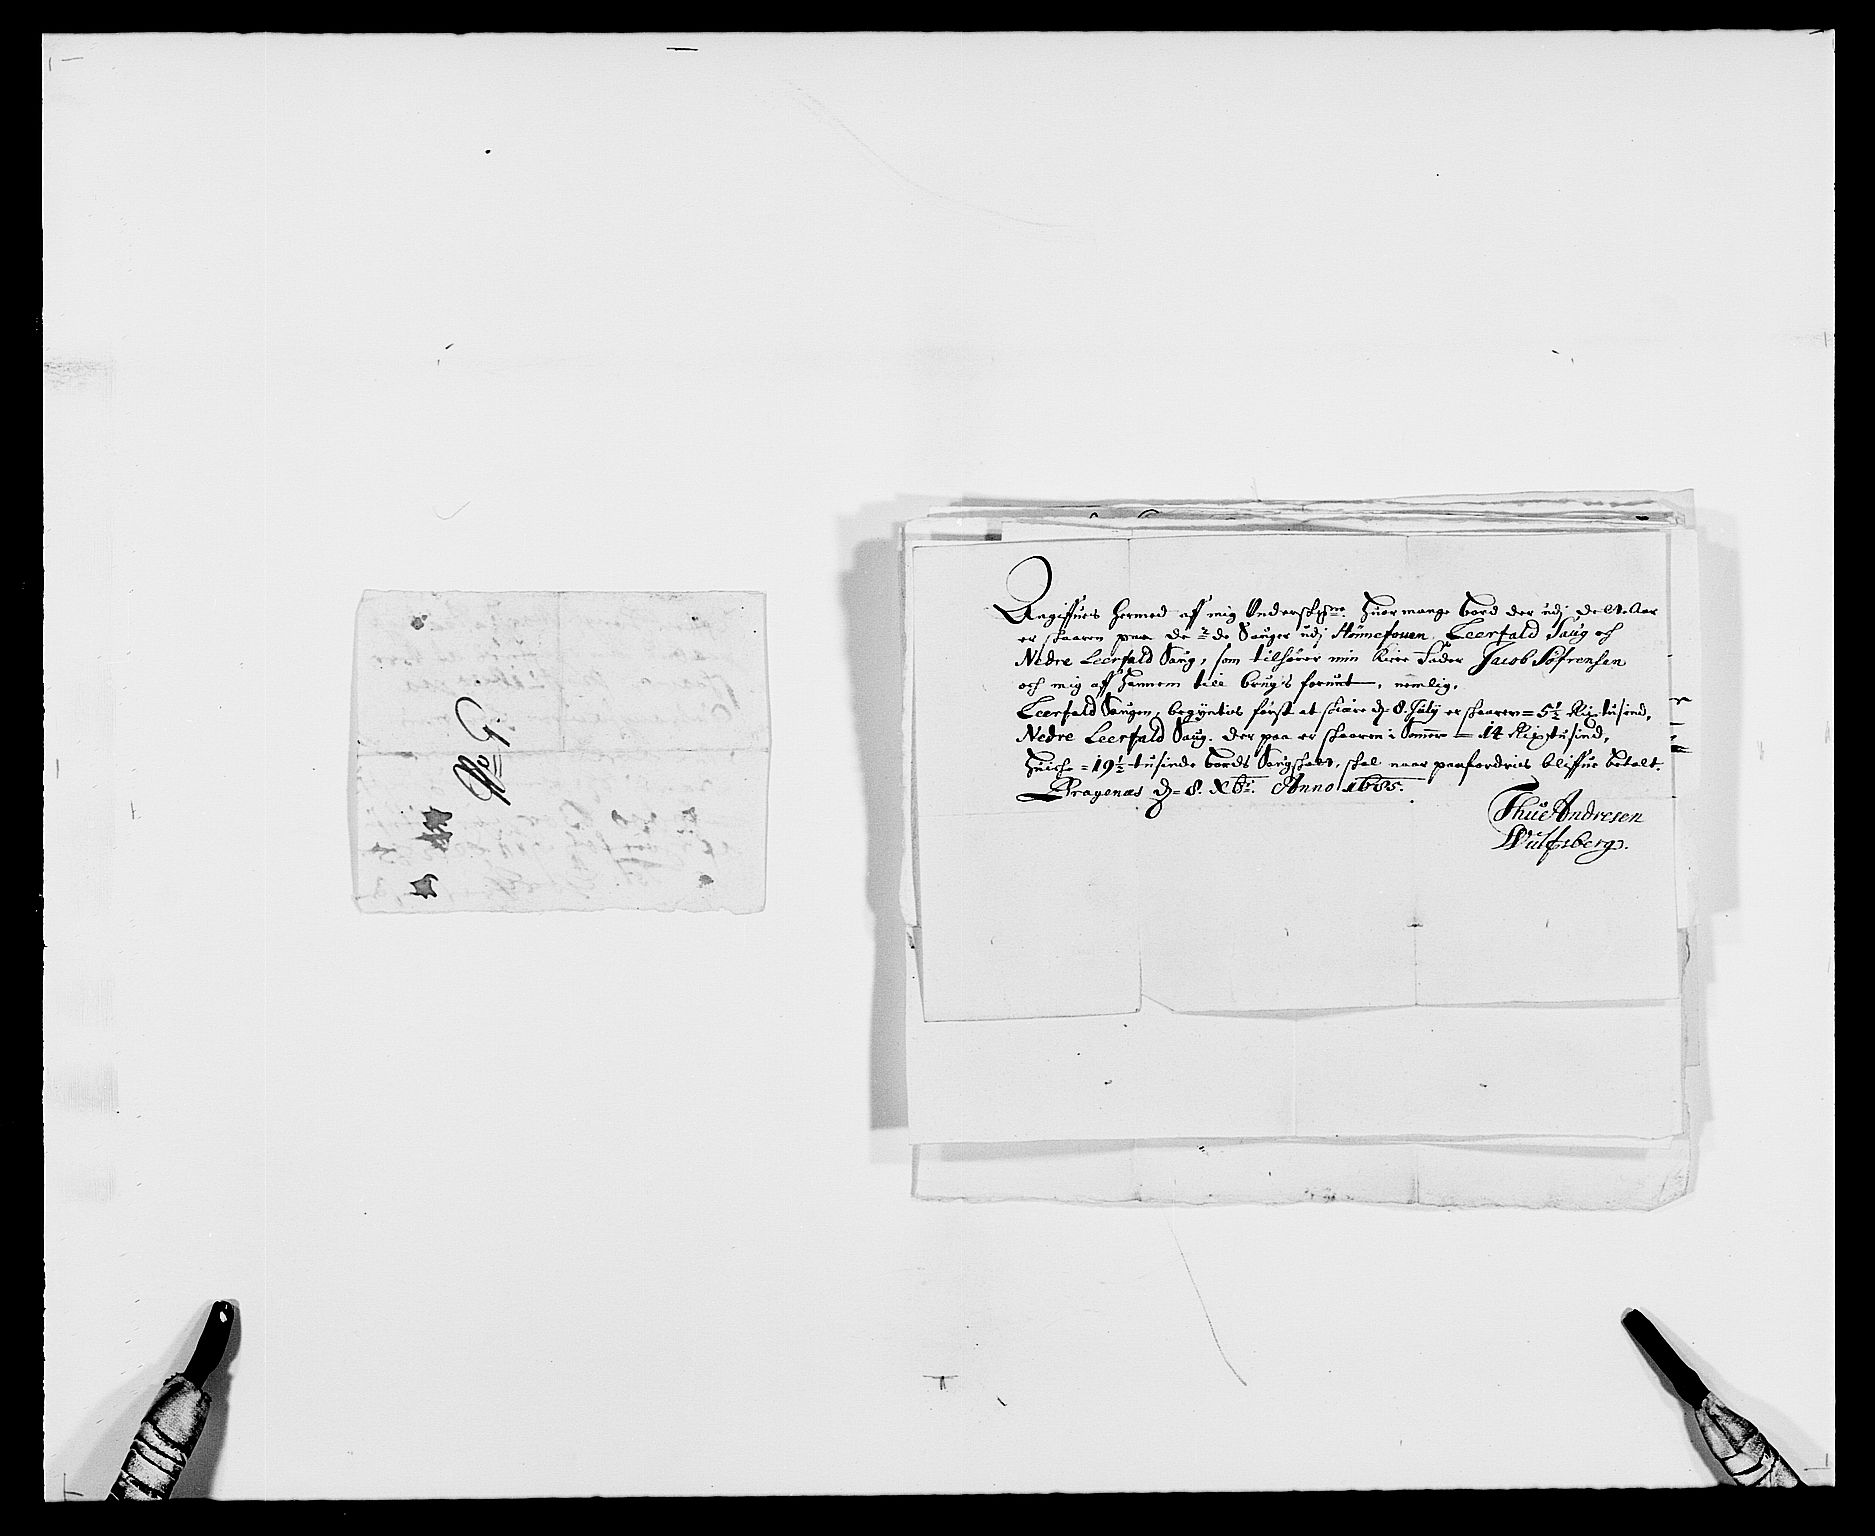 No G.
Angiffues hermed aff mig Underschrne. huor mange bord der udj dette Aar
er skaaren paa de 2de Sauger udj Hönnefouen, Leerfald Saug och
Nedre Leerfald Saug, som tilhörer min Kiere Fader Jacob Söfrensen
och mig aff hannem till brugs forunt, nemlig,
Leerfald Saugen, begyntis först at skiære d. 8. July er skaaren = 5½ tusind,
Nedre Leerfald Saug. der paa er skaaren i Sommer = 14 tusind,
huiche = 19½ tusinde bords Saugskatt, skal naar paafordris bliffue betalt.
Bragenæs d. 8. Xbr. Anno 1685.
Thue Andresen
Wulfsberg.